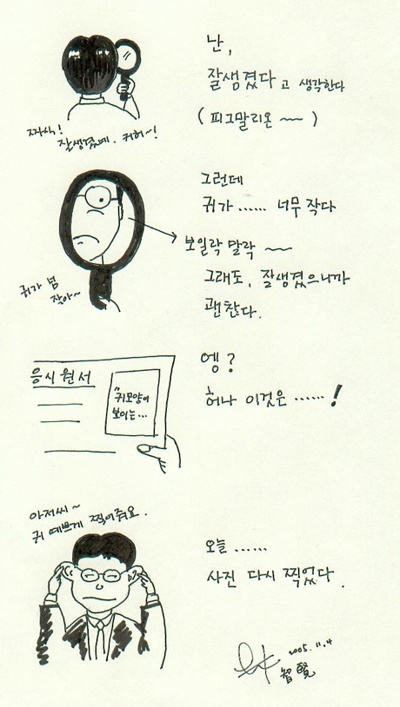 난,
잘생겼다고 생각한다
(피그말리온 ~~)
짜식!
잘생겼네. 커허~!
그런데
귀가 …… 너무 작다
보일락 말락 ~~
귀가 넘
작아~
그래도, 잘생겼으니까
괜찮다.
엥?
허나 이것은 …… !
응시원서
"귀모양이
보이는…
아저씨~
귀 예쁘게 찍어줘요.
오늘 ……
사진 다시 찍었다.
2005. 11. 4